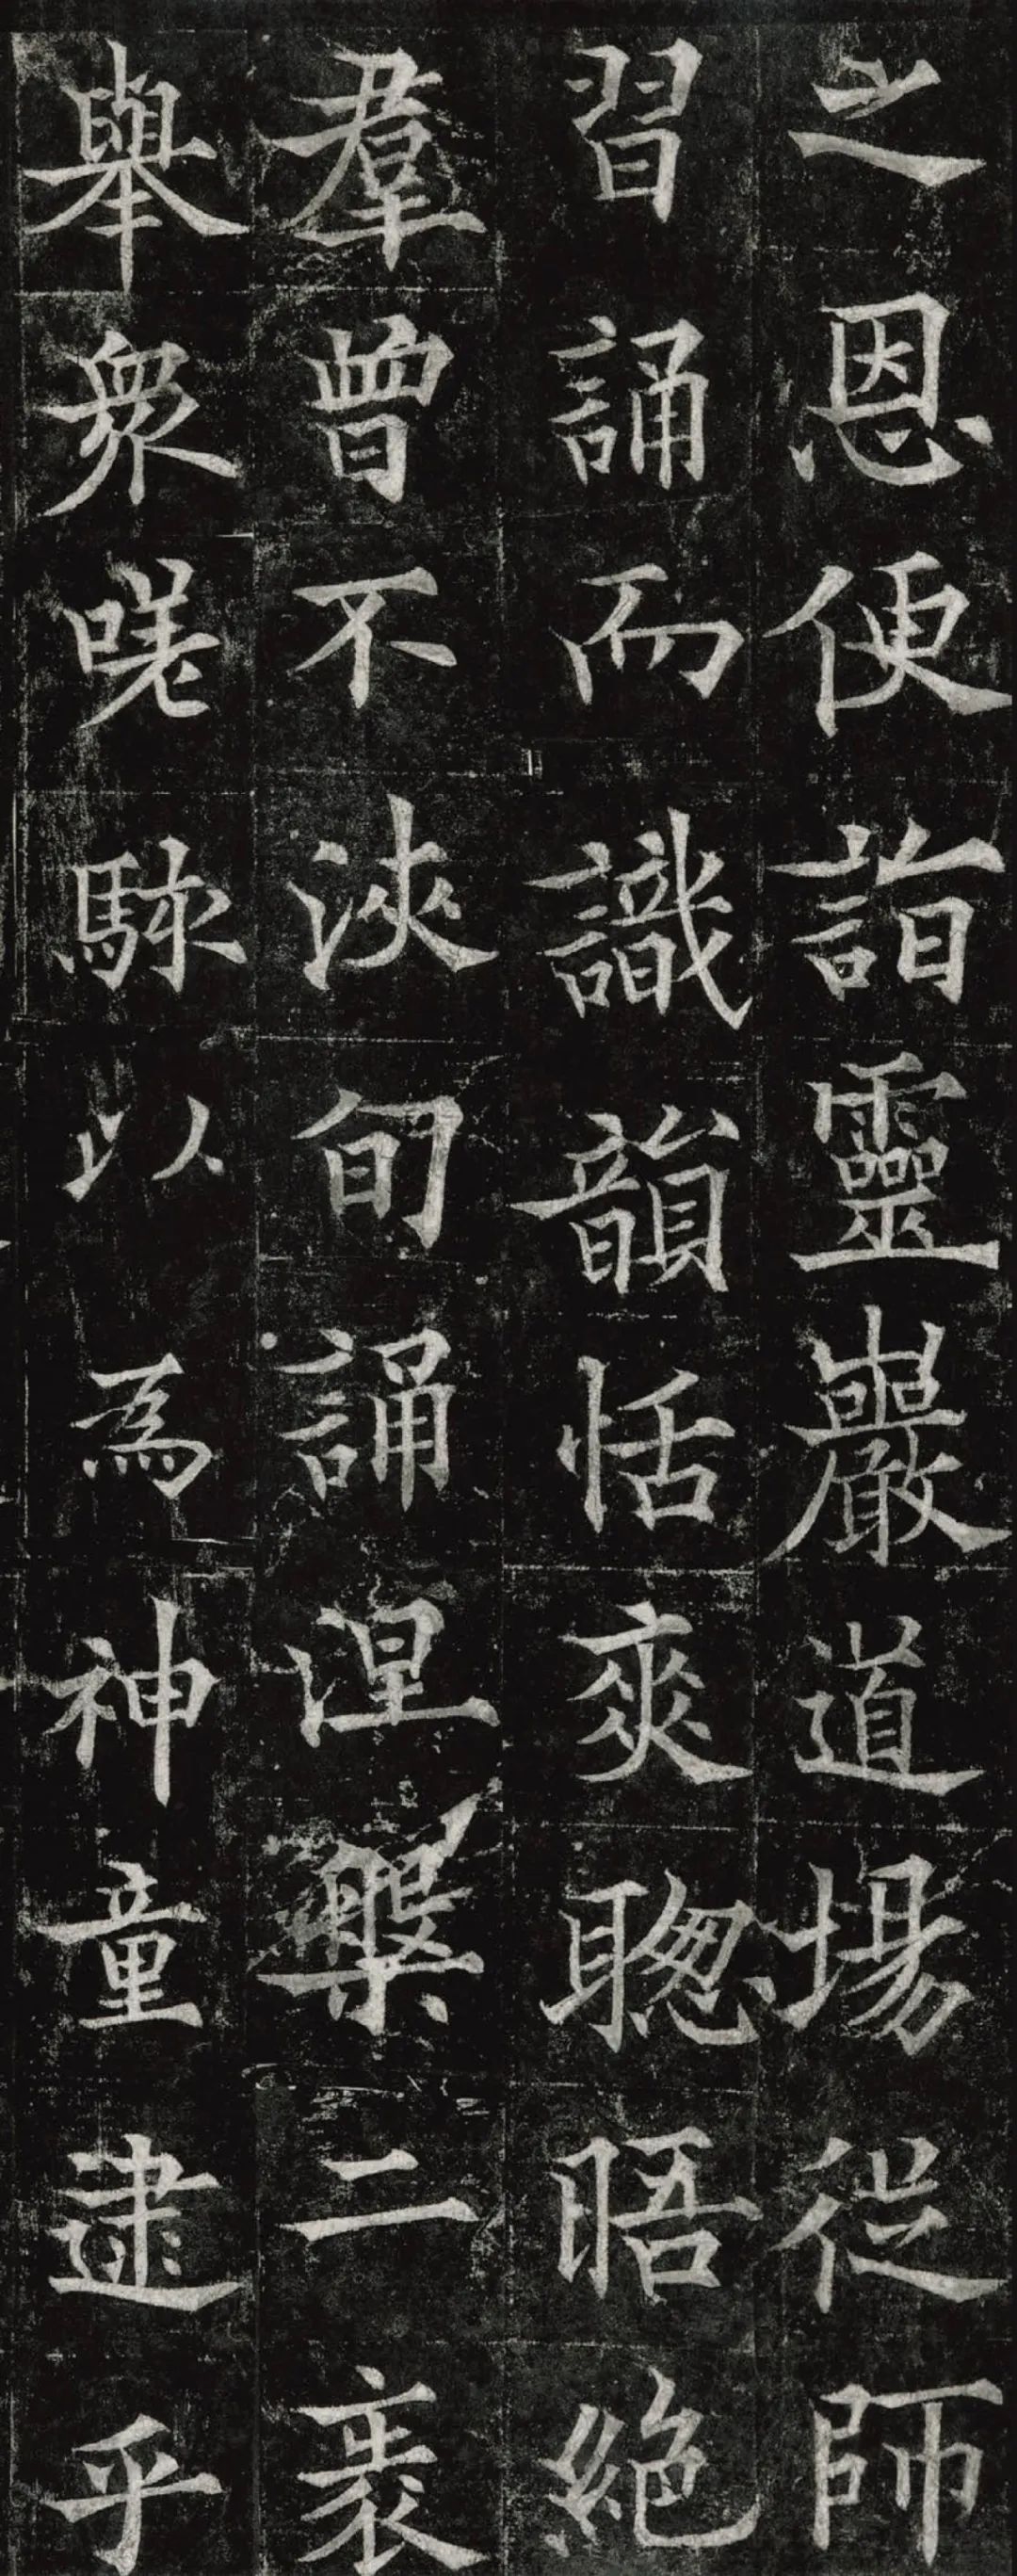 之恩便詣靈巖道場從師
習誦而識韻恬爽聰晤絕
羣曾不浹旬誦涅槃二袠
舉衆嗟駭以為神童逮乎